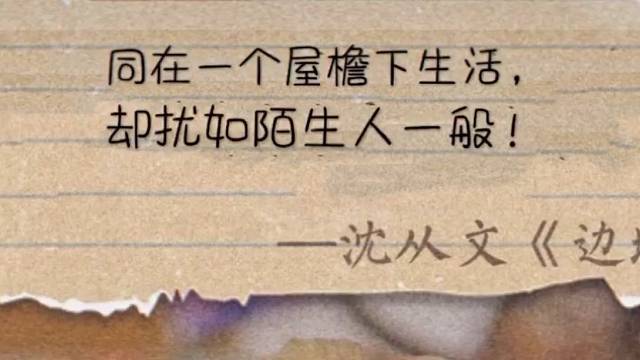 同在一个屋檐下生活，
却扰如陌生人一般！
—沈从文《边